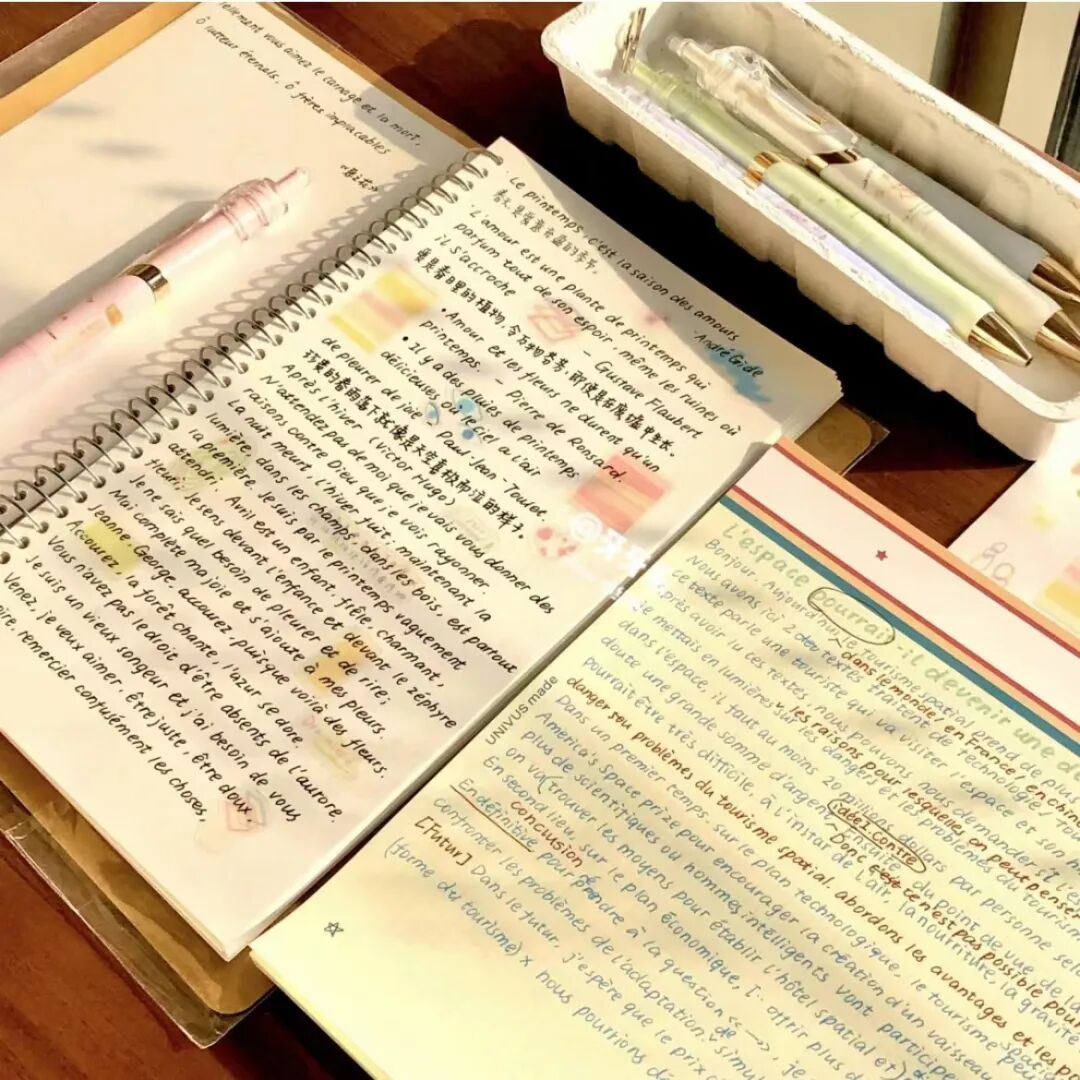 ellement vous aimez le carnage et la mort,
Ô lutteur éternels, ô frères implacables
Le printemps, c'est la saison des amours
春天是爱意右溢的季节。
André Gide
L'amour est une plante de printemps qui
parfum tout de son espoir, même les ruines où
il s'accroche - Gustave Flaubert
爱是春日里的植物,令万物芬芳,即使是在废墟中生长
• Amour et les fleurs ne durent qu'un
printemps. - Pierre de Ronsard.
• Il y a des pluies de printemps
délicieuses où le ciel a l'air
de pleurer de joie Paul Jean Toulet
Après l'hiver (Victor Hugo)
N'attendez pas de moi que je vais vous donner des
raisons contre Dieu que je vois rayonner.
La nuit meurt, l'hiver fuit, maintenant la
lumière, dans les champs, dans les bois, est partout
la première. Je suis par le printemps vaguement
attendri. Avril est un enfant, frêle, charmant,
fleuri. Je sens devant l'enfance et devant le zéphyre
Je ne sais quel besoin de pleurer et de rire;
Mai complète ma joie et s'ajoute à mes pleurs.
Jeanne, George, accourez, puisque voilà des fleurs.
Accourez, la forêt chante, l'azur se dore
Vous n'avez pas le droit d'être absents de l'aurore
Je suis un vieux songeur et j'ai besoin de vous
Venez, je veux aimer, être juste, être doux,
remercier confusément les choses,
UNIVUS made
L'espace pourrait-il devenir une de
Bonjour. Aujourd'hui, le tourisme spatial prend de plus
dans le monde, en France en Chin
Nous avons ici 2 textes traitent de technologie/
Ce texte parle une touriste qui va visiter l'espace et son
Après avoir lu ces textes, nous pouvons nous demander si l'es
les raisons pour lesquelles on peut penser
Je mettrais en lumières sur les dangers et le problèmes du tourism
dans l'espace, il faut au moins 20 millions dollars par personne sel
doute une grande somme d'argent ensuite, du point de vue de la
pourrait être très difficile, à l'instar de l'air, la nourriture la gravité
idée 1. contre
~Donc ce n'est pas possible pour
danger sou problèmes du tourisme spatial. abordons les avantages et les p
Dans un premier temps, sur le plan technologique, le tourisme spatia
America's Space prize pour encourager la création d'un vaisseau
plus de scientifiques ou hommes intelligents vont participe
on va (trouver les moyens pour établir l'hôtel spatial et)
En second lieu, sur le plan économique, [.. offrir plus d
conclusion
En définitive pour répondre à la question << →, je
confronter les problèmes de l'adaptation, de simul
[Futur] Dans le futur, j'espère que le prix d
(forme du tourisme) x nous pourrions